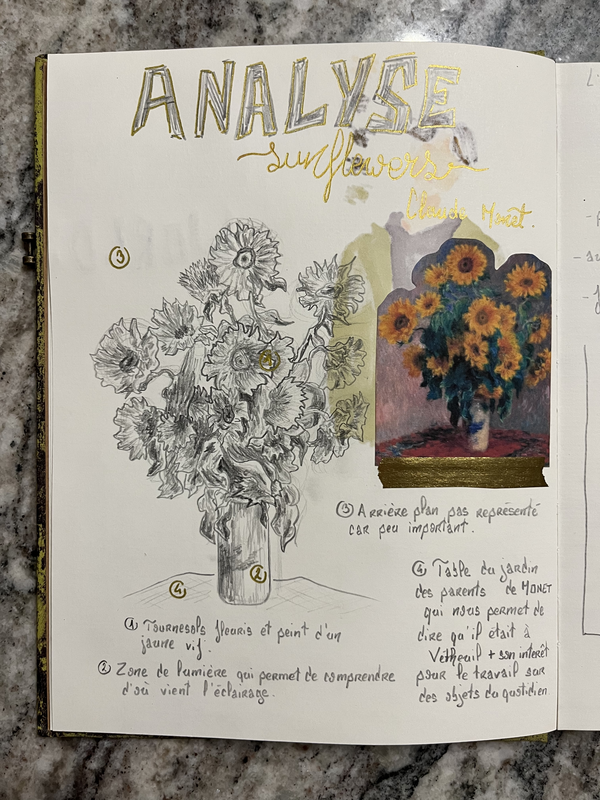 ANALYSE
sunflowers
Claude Monet.
③
①
④
②
③ Arrière plan pas représenté
car peu important.
④ Table du jardin
des parents de MONET
qui nous permet de
dire qu'il était à
Vétheuil + son interêt
pour le travail sur
des objets du quotidien
① Tournesols fleuris et peint d'un
jaune vif.
② Zone de lumière qui permet de comprendre
d'où vient l'éclairage.